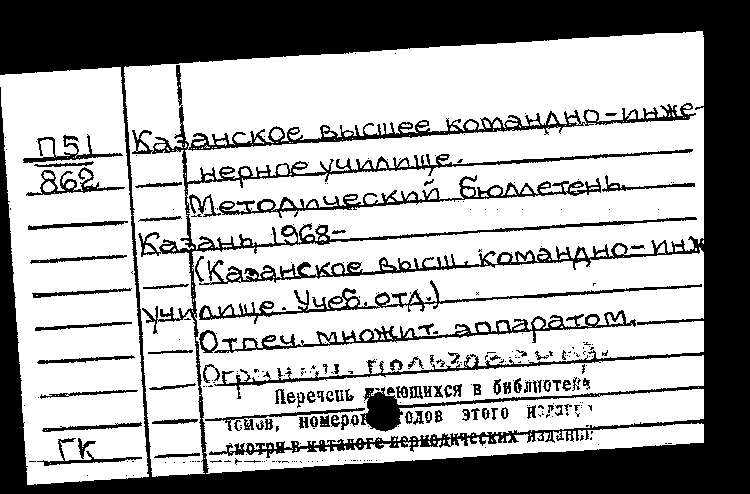 П51
862
Казанское высшее командно-инже-
нерное училище.
Методический бюллетень.
Казань, 1968-
(Казанское высш. командно-инж
училище. Учеб. отд.)
Отпеч. множит. аппаратом.
Огранич. пользования.
Перечень имеющихся в библиотеке
томов, номеров годов этого издания
смотри в каталоге периодических изданий
ГК